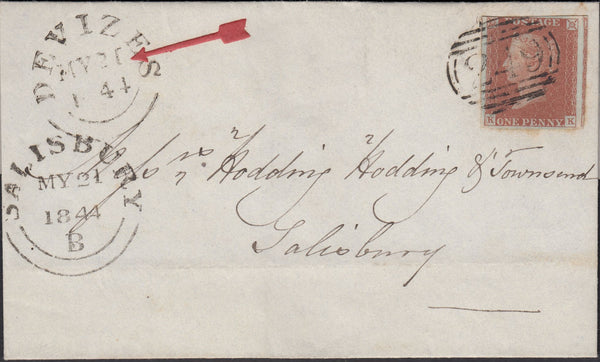 DEVIZES
MY 21
1844
POSTAGE
K K
ONE PENNY
SALISBURY
MY 21
1844
B
Hodding Hodding & Townsend
Salisbury